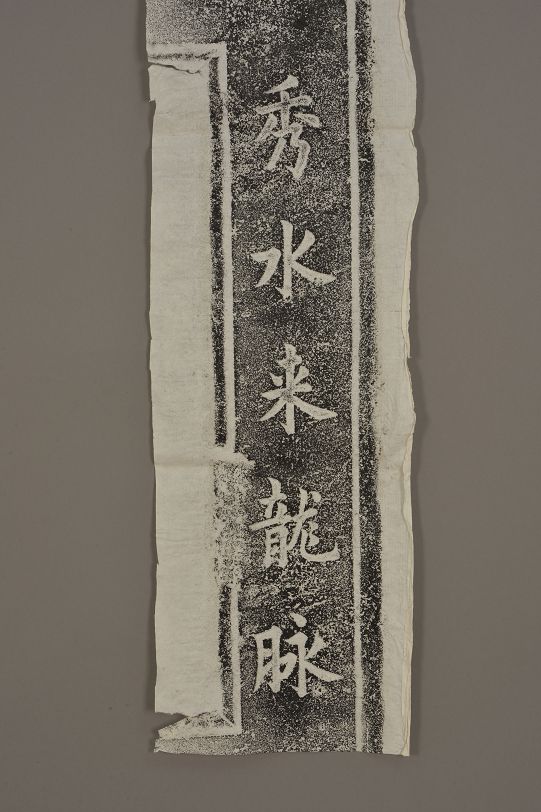 秀水来龍脉